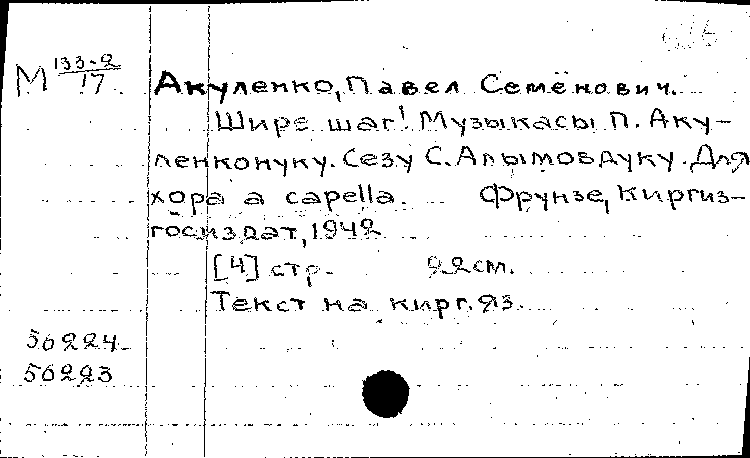 М 133-2/17
Акуленко, Павел Семёнович.
Шире шаг! Музыкасы П. Аку-
ленконуку. Сезу С. Алымовдуку. Для
хора a capella. Фрунзе, Киргиз-
госиздат, 1942
[4] стр. 22см.
Текст на кирг. яз.
56224
56223